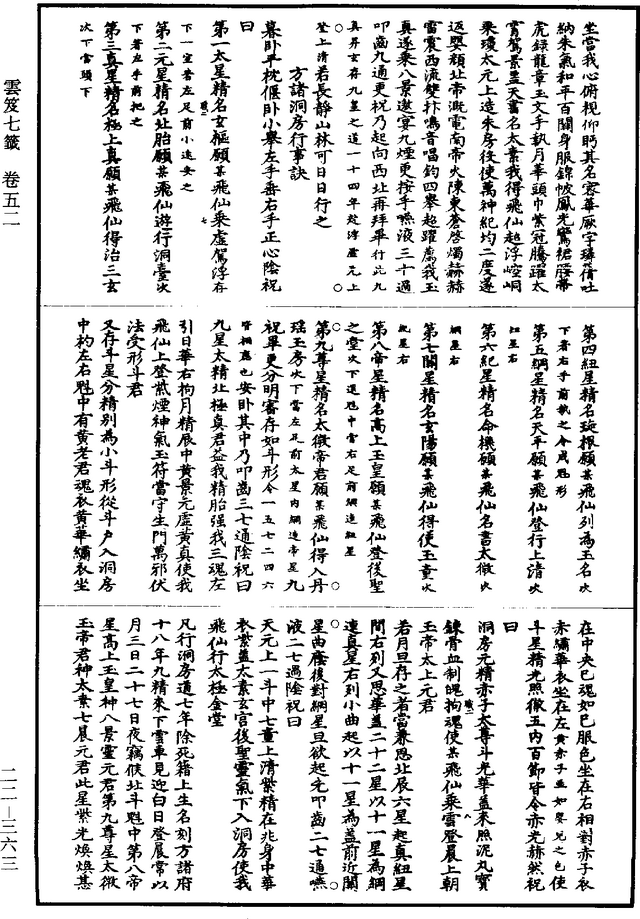 坐當我心俯視仰眄其名寥華厥字璘蒨吐
納朱氣和平百關身服錦帔鳳光鸞裙腰帶
虎籙龍章玉文手執月華頭巾紫冠騰躍太
霄駕景盖天書名太素我得飛仙超浮崆峒
乘瓊太元上造朱房役使萬神紀均二度遂
返嬰顏北帝溉電南帝火陳東蒼啓燭赫赫
雷震西流雙抃鳴音唱鈞四舉超躍薦我玉
真遂乘八景遨宴九煙更按手嚥液三十過
叩齒九通更祝乃起向西北再拜畢行此九
真昇玄存九星之道一十四年超浮虛无上
登上清若長靜山林可日日行之
方諸洞房行事訣
暮卧平枕偃卧小舉左手垂右手正心陰祝
曰
第一太星精名玄樞願某飛仙乘虛駕浮存
下一空者左足前小遠安之
第二元星精名北胎願某飛仙遊行洞臺次
下者左手前把之
第三真星精名極上真願某飛仙得治三玄
次下當頭下
第四紐星精名璇根願某飛仙列為玉名次
下者右手前執之令成魁形
第五綱星精名天平願某飛仙登行上清次
紐星右
第六紀星精名命機願某飛仙名書太微次
綱星右
第七關星精名玄陽願某飛仙得使玉童次
紀星右
第八帝星精名高上玉皇願某飛仙登後聖
之堂次下還魁中當右足前綱連紐星
第九尊星精名太微帝君願某飛仙得入丹
瑶玉房次下當左足前太星内綱連帝星九
祝畢更分明審存如斗形令一五七二四六
皆相應也安卧其中乃叩齒三七通陰祝曰
九星太精北極真君益我精胎强我三魂左
引日華右拘月精辰中黄景元虛黄真使我
飛仙上登煞煙神氣玉符當守生門萬邪伏
法受形斗君
又存斗星分精别為小斗形從斗户入洞房
中杓左右魁中有黄老君魂衣黄華繡衣坐
在中央己魂如己服色坐在右相對赤子衣
赤繡華衣坐在左黄赤子並如嬰兒之色使
斗星精光照徹五内百節皆令赤光赫然祝
曰
洞房元精赤子太尊斗光華盖來照泥丸寶
鍊骨血制魄拘魂使某飛仙乘雲登晨上朝
玉帝太上元君
若月旦存之者當兼思北辰六星起真紐星
間右列又思華蓋二十二星以十一星為綱
連真星右列小曲起以十一星為蓋前近關
星曲壓後對綱星旦欲起先叩齒二七通嚥
液二七過陰祝曰
天元上一斗中七童上清紫精在兆身中華
衣紫蓋太素玄宫後聖靈氣下入洞房使我
飛仙行太極金堂
凡行洞房道七年除死籍上生名刻方諸府
十八年九精來下雲車見迎白日登晨常以
月三日二十七日夜竊候北斗魁中第八帝
星高上玉皇神八景靈元君第九尊星太微
玉帝君神太素七晨元君此星紫光煥煥甚
雲笈七籤 卷五二
二二—三六三